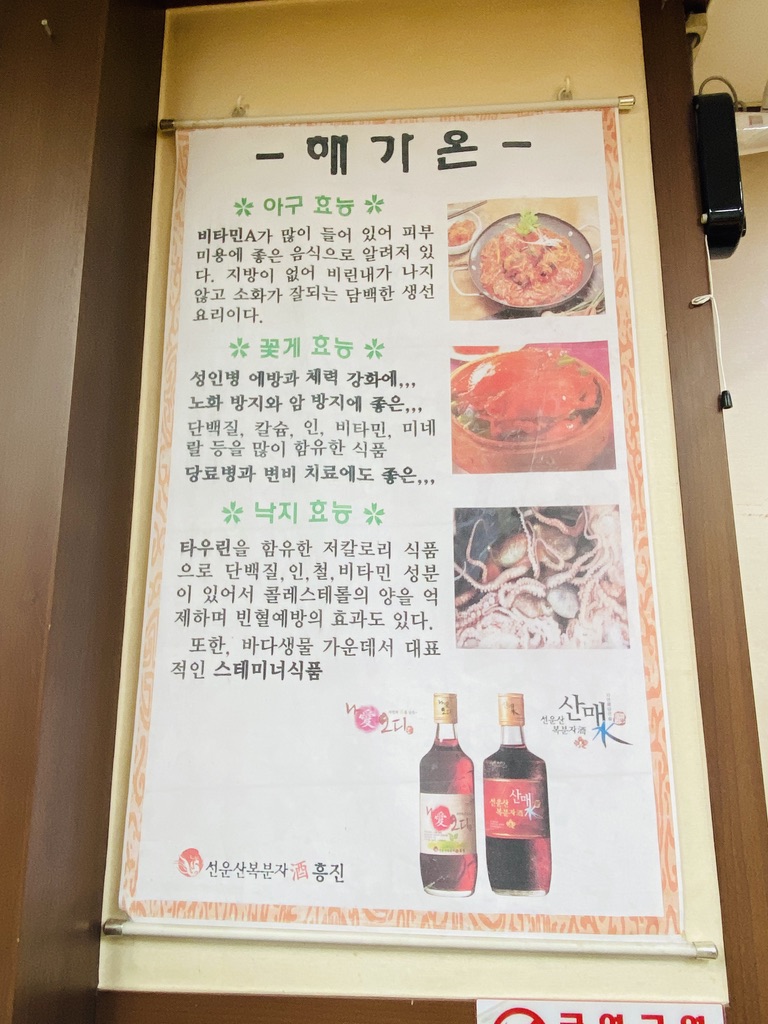 - 해가온 -
아구 효능
비타민A가 많이 들어 있어 피부
미용에 좋은 음식으로 알려져 있
다. 지방이 없어 비린내가 나지
않고 소화가 잘되는 담백한 생선
요리이다.
꽃게 효능
성인병 예방과 체력 강화에,,,
노화 방지와 암 방지에 좋은,,,
단백질, 칼슘, 인, 비타민, 미네
랄 등을 많이 함유한 식품
당료병과 변비 치료에도 좋은,,,
낙지 효능
타우린을 함유한 저칼로리 식품
으로 단백질,인,철,비타민 성분
이 있어서 콜레스테롤의 양을 억
제하며 빈혈예방의 효과도 있다.
또한, 바다생물 가운데서 대표
적인 스테미너식품
나愛오디
산매水
선운산
복분자酒
나愛오디
산매水
선운산
복분자酒
선운산복분자酒흥진